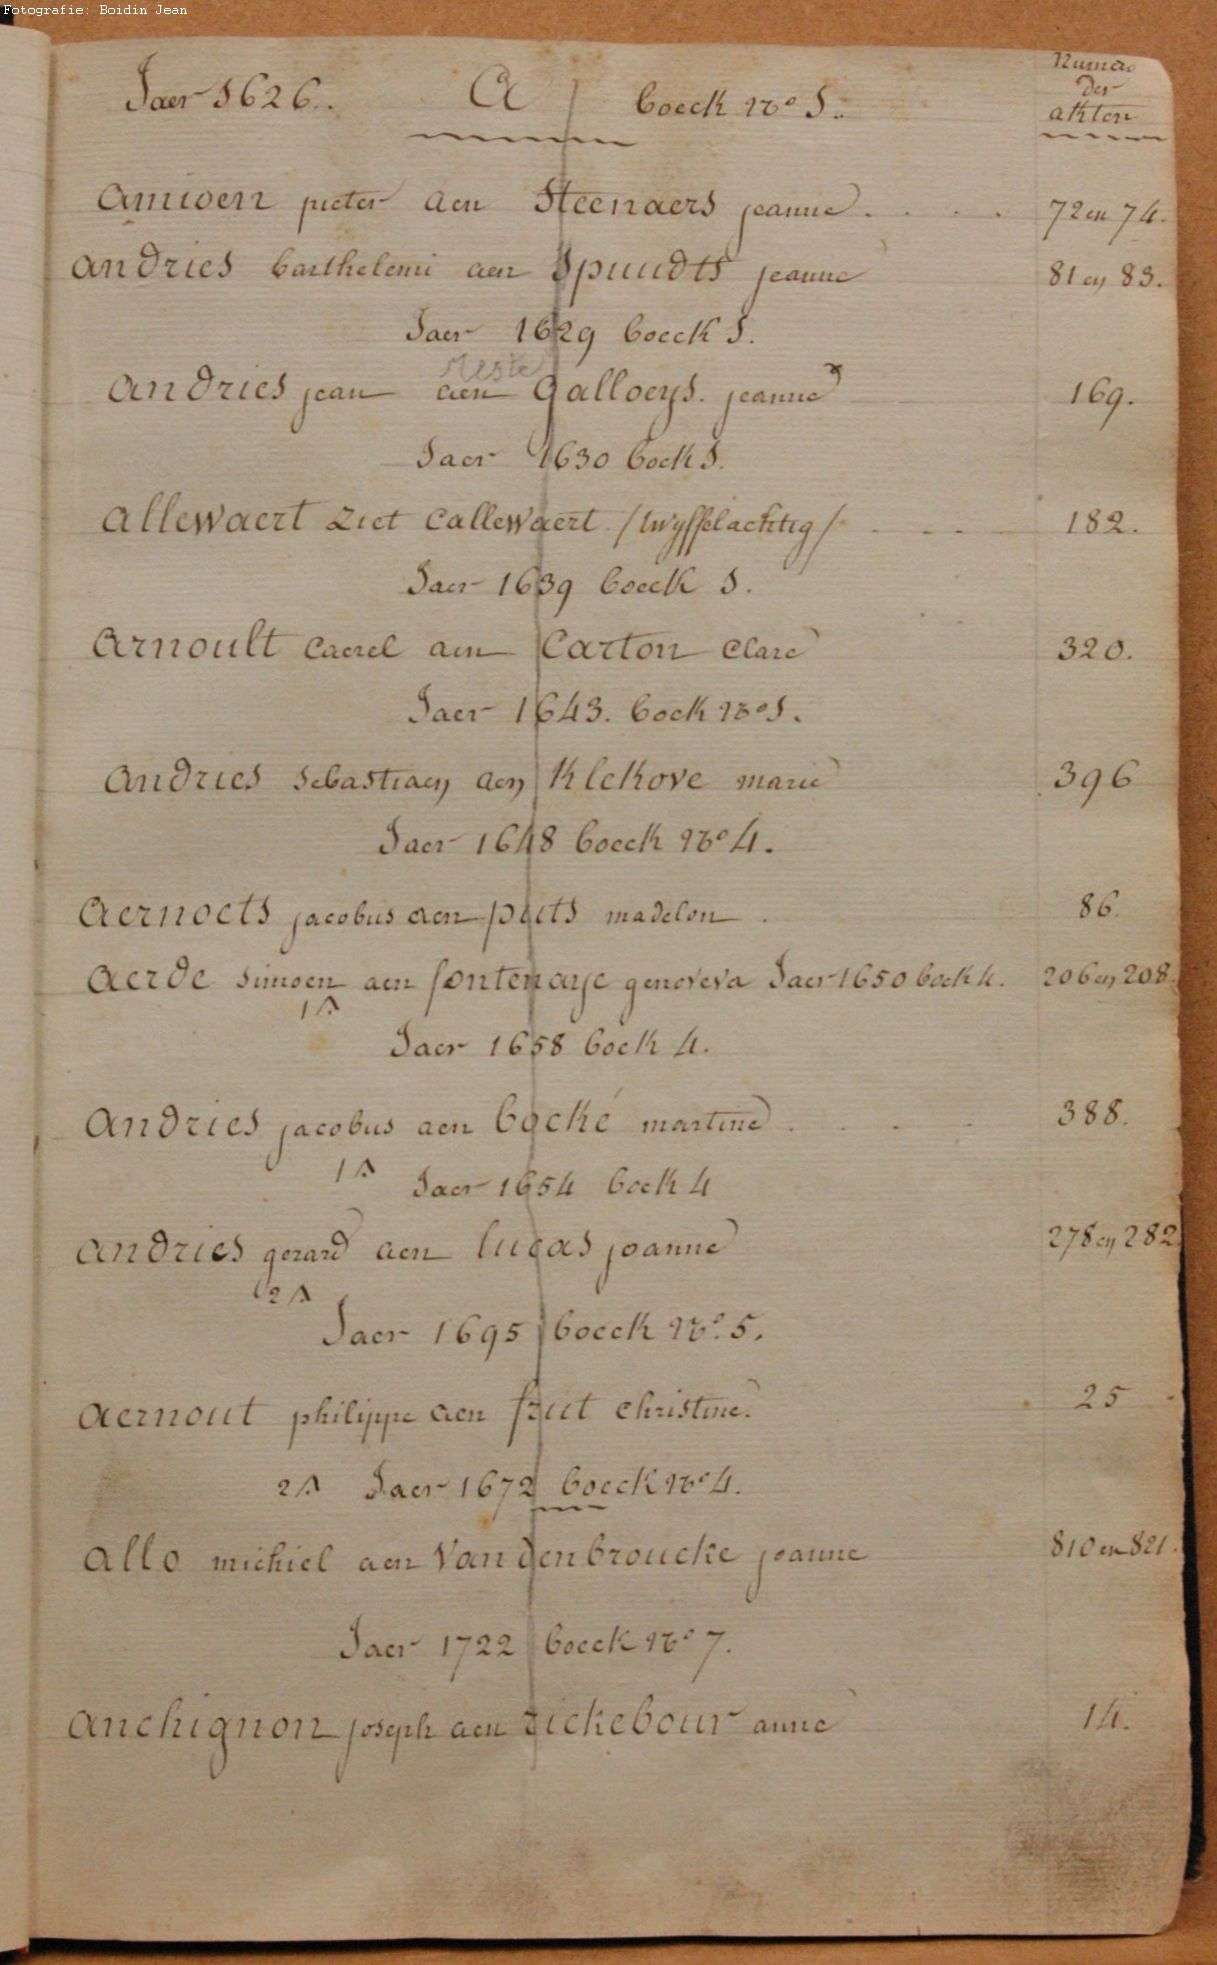 Fotografie: Boidin Jean
Numero
der
akten
Jaer 1626. A boeck No 1.
amioen pieter aen Steenaers jeanne . . . . 72 en 74.
andries barthelemi aen Spuudts jeanne 81 en 83.
Jaer 1629 boeck 1.
andries jean aen galloeys. jeanne 169.
Jaer 1630 boek 1.
allewaert ziet Callewaert /twyffelachtig/ . . . 182.
Jaer 1639 boeck 1.
arnoult Caerel aen Carton Clare 320.
Jaer 1643. boek No 1.
andries sebastiaen aen Klekove marie 396
Jaer 1648 boeck No 4.
aernoets jacobus aen puts madelon . 86.
aerde simoen aen fontenaye genoveva Jaer 1650 boek 4. 206 en 208.
Jaer 1658 boek 4.
andries jacobus aen bocké martine . . . 388.
Jaer 1654 boek 4
andries gerard aen lucas joanne 278 en 282.
Jaer 1695 boeck No. 5.
aernout philippe aen frut christine. 25
Jaer 1672 boeck No 4.
allo michiel aen Vandenbroucke joanne 810 en 821.
Jaer 1722 boeck No 7.
anchignon joseph aen rickebour anne 14.